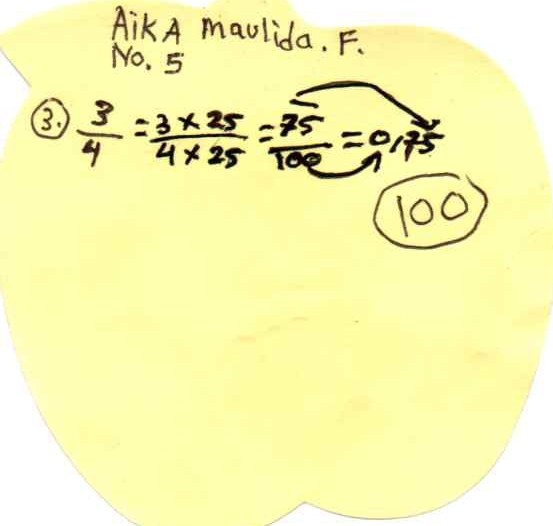 AiKA Maulida. F.
No. 5
3. 3/4 = 3 × 25 / 4 × 25 = 75/100 = 0,75
100